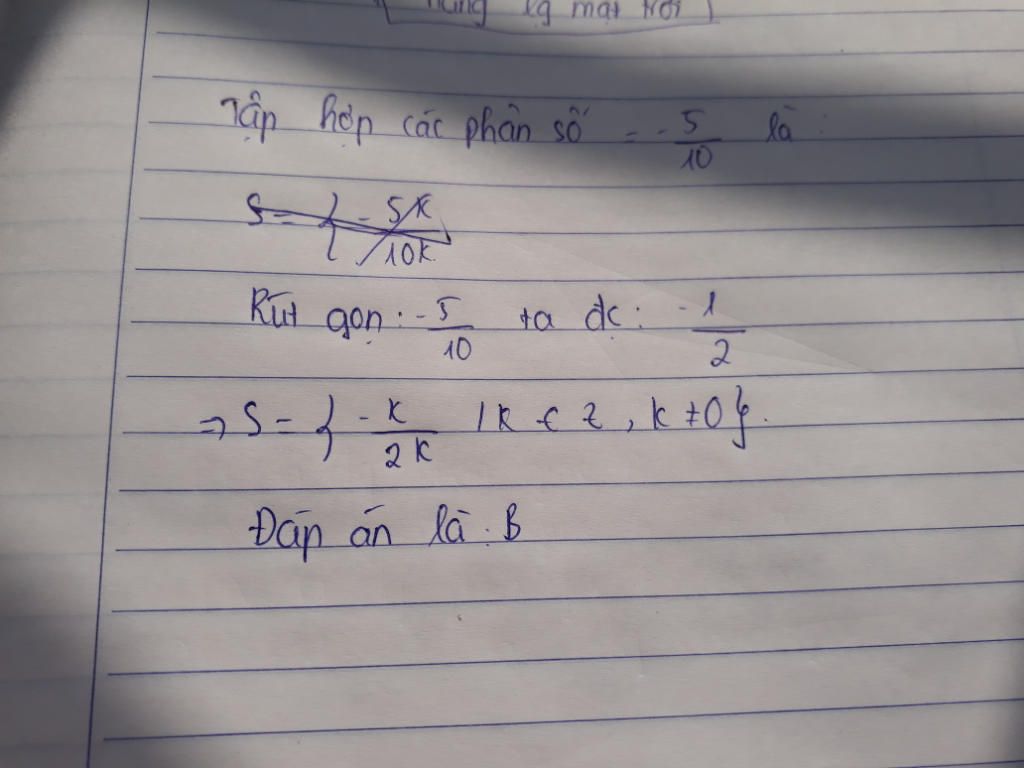 năng lg mặt trời
Tập hợp các phân số = -5/10 là :
S = { -5k/10k
Rút gọn : -5/10 ta đc : -1/2
⇒ S = { -k/2k / k ∈ Z , k ≠ 0 }.
Đáp án là : B